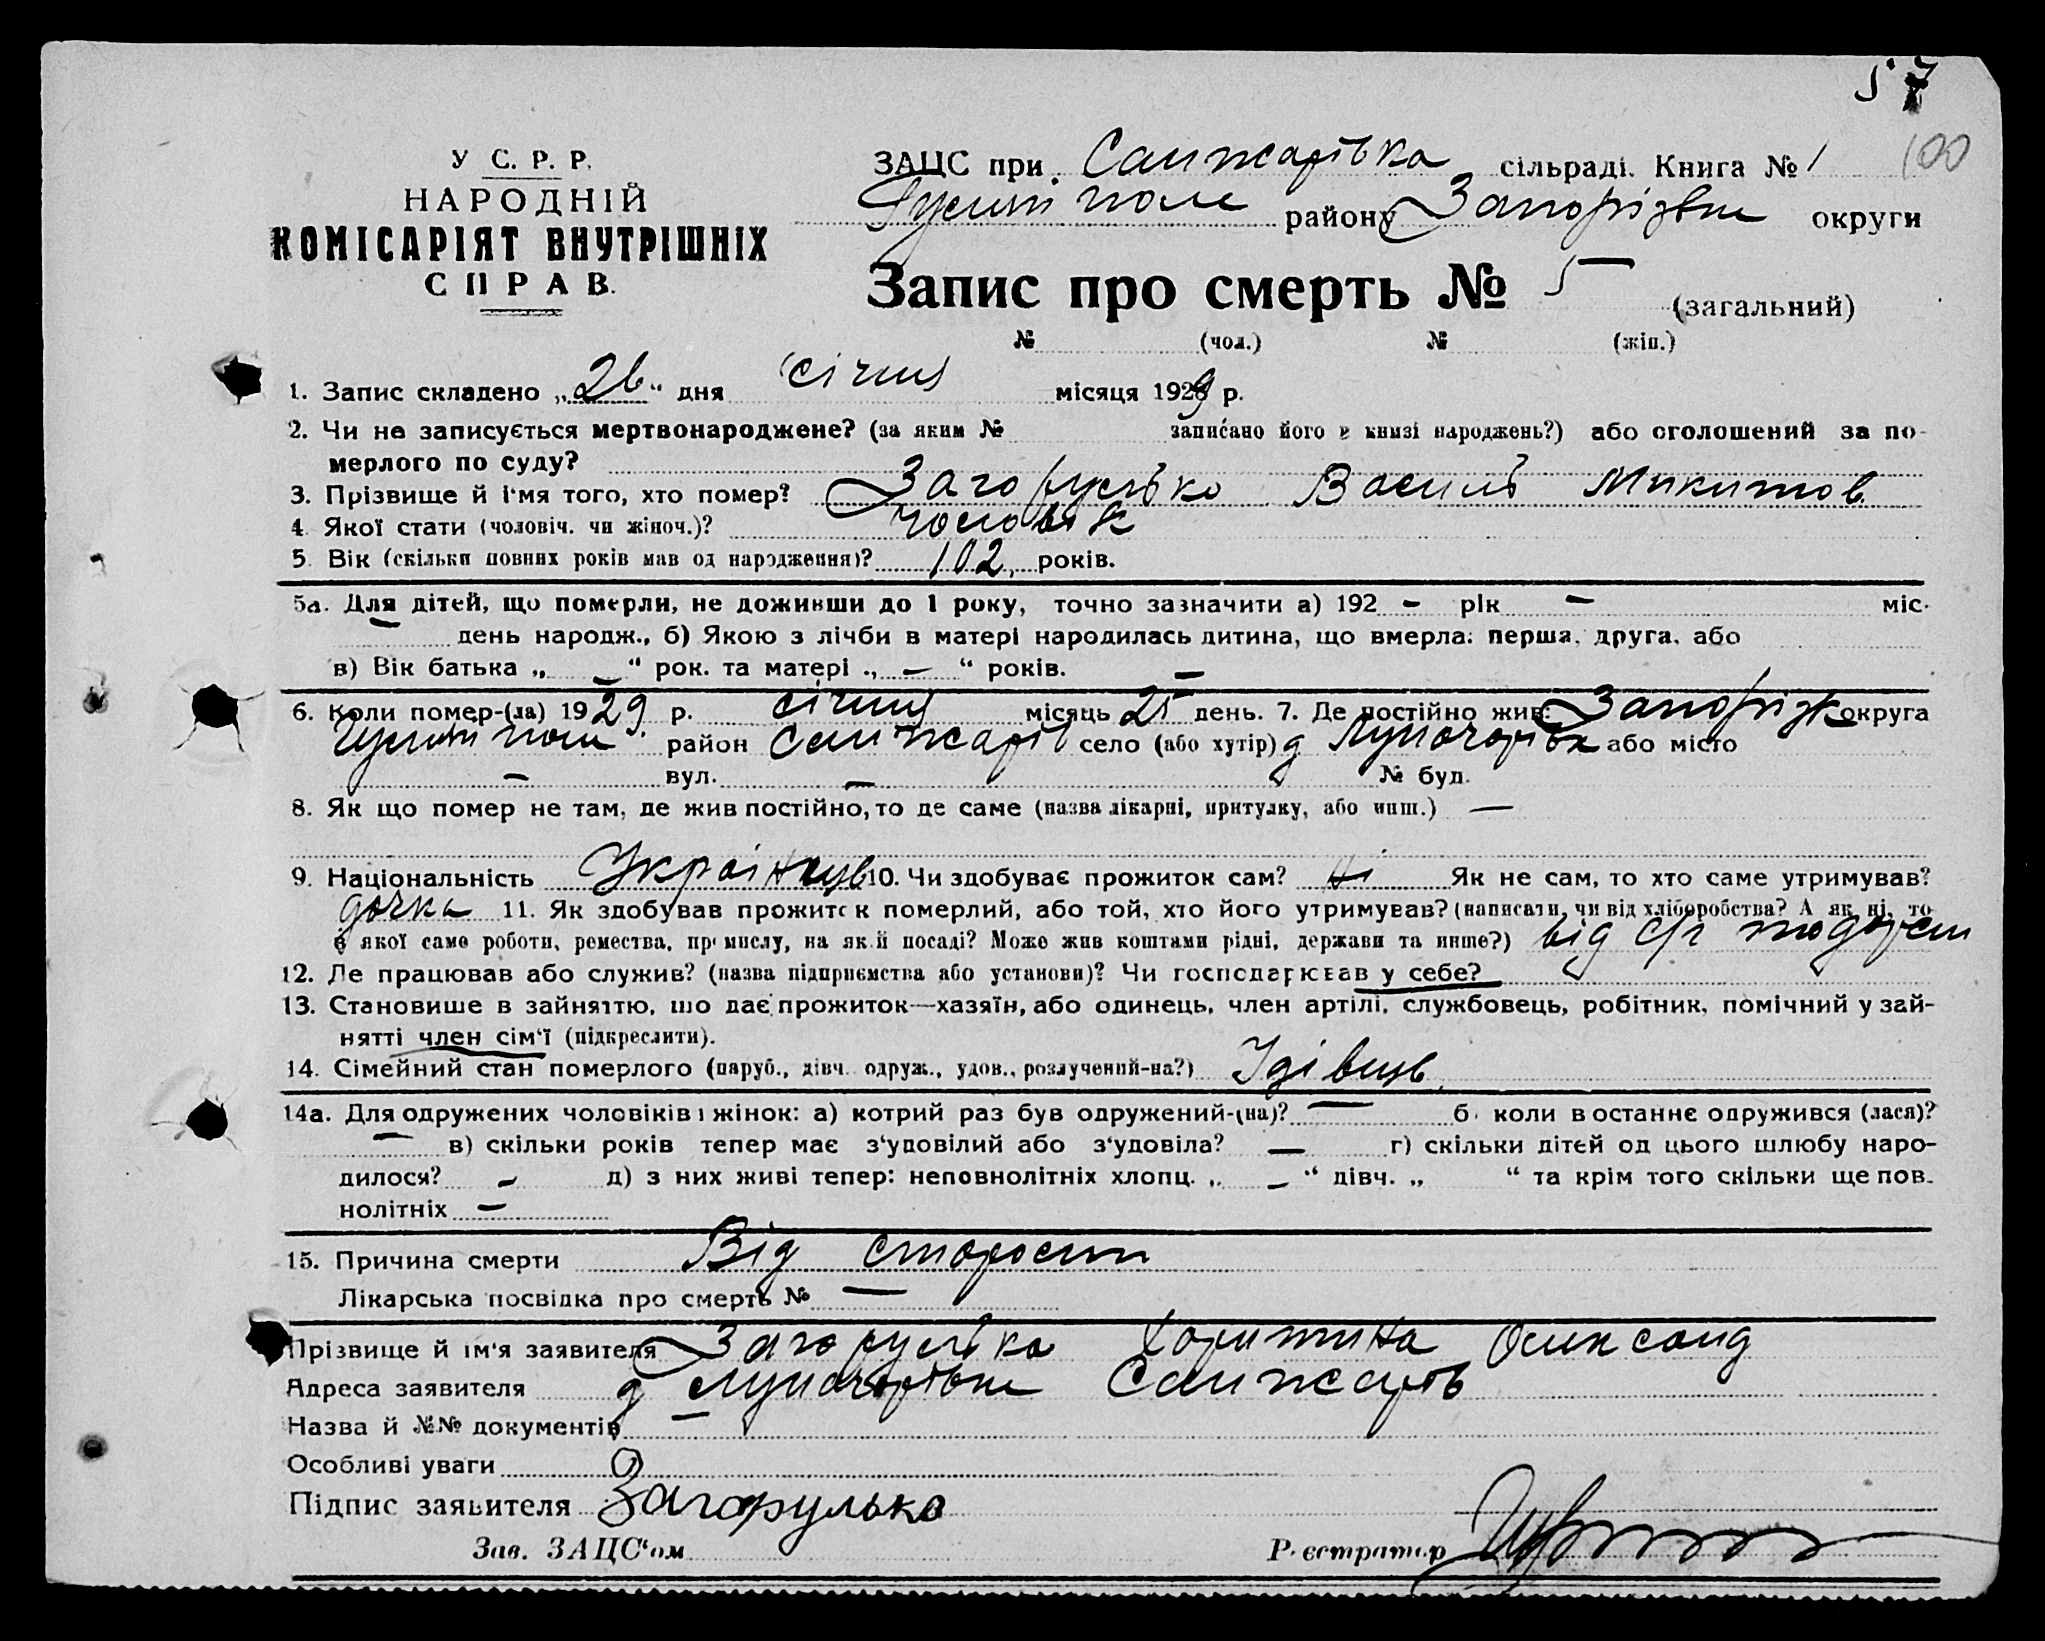 57
100
У С. Р. Р.
НАРОДНІЙ
КОМІСАРІЯТ ВНУТРІШНІХ
СПРАВ.
ЗАЦС при Санжарівка сільраді. Книга № 1
Гуляй поле району Запорізьке округи
Запис про смерть № 5 (загальний)
№ (чол.) № (жін.)
1. Запис складено „26“ дня січня місяця 1929 р.
2. Чи не записується мертвонароджене? (за яким № записано його в книзі народжень?) або оголошений за по-
мерлого по суду?
3. Прізвище й ім'я того, хто помер? Загорулько Василь Микитов
4. Якої стати (чоловіч. чи жіноч.)? чоловік
5. Вік (скільки повних років мав од народження)? 102 років.
5а. Для дітей, що померли, не доживши до 1 року, точно зазначити а) 192 – рік – міс.
– день народж., б) Якою з лічби в матері народилась дитина, що вмерла: перша, друга, або
в) Вік батька „ – “ рок. та матері „ – “ років. –
6. Коли помер-(ла) 1929 р. січня місяць 25 день. 7. Де постійно жив: Запоріжж округа
район Санжарів село (або хутір) або місто
– вул. – № буд.
8. Як що помер не там, де жив постійно, то де саме (назва лікарні, притулку, або инш.) –
9. Національність Українець 10. Чи здобував прожиток сам? ні Як не сам, то хто саме утримував?
дочка 11. Як здобував прожиток померлий, або той, хто його утримував? (написати, чи від хліборобства? А як ні, то
з якої саме роботи, ремества, промислу, на якій посаді? Може жив коштами рідні, держави та инше?) від с/г
12. Де працював або служив? (назва підприємства або установи)? Чи господарював у себе?
13. Становище в зайняттю, що дає прожиток—хазяїн, або одинець, член артілі, службовець, робітник, помічний у зай-
нятті член сім'ї (підкреслити).
14. Сімейний стан померлого (паруб., дівч. одруж., удов., розлучений-на?) Удівець
14а. Для одружених чоловіків і жінок: а) котрий раз був одружений-(на)? – б) коли востаннє одружився (лася)?
– в) скільки років тепер має з'удовілий або з'удовіла? – г) скільки дітей од цього шлюбу наро-
дилося? – д) з них живі тепер: неповнолітніх хлопц. „ – “ дівч. „ “ та крім того скільки ще пов-
нолітніх –
15. Причина смерти Від старости
Лікарська посвідка про смерть № –
Прізвище й ім'я заявителя Загорулька Харитина Олександ
Адреса заявителя Санжарів
Назва й №№ документів –
Особливі уваги
Підпис заявителя Загорулько
Зав. ЗАЦС'ом Реєстратор